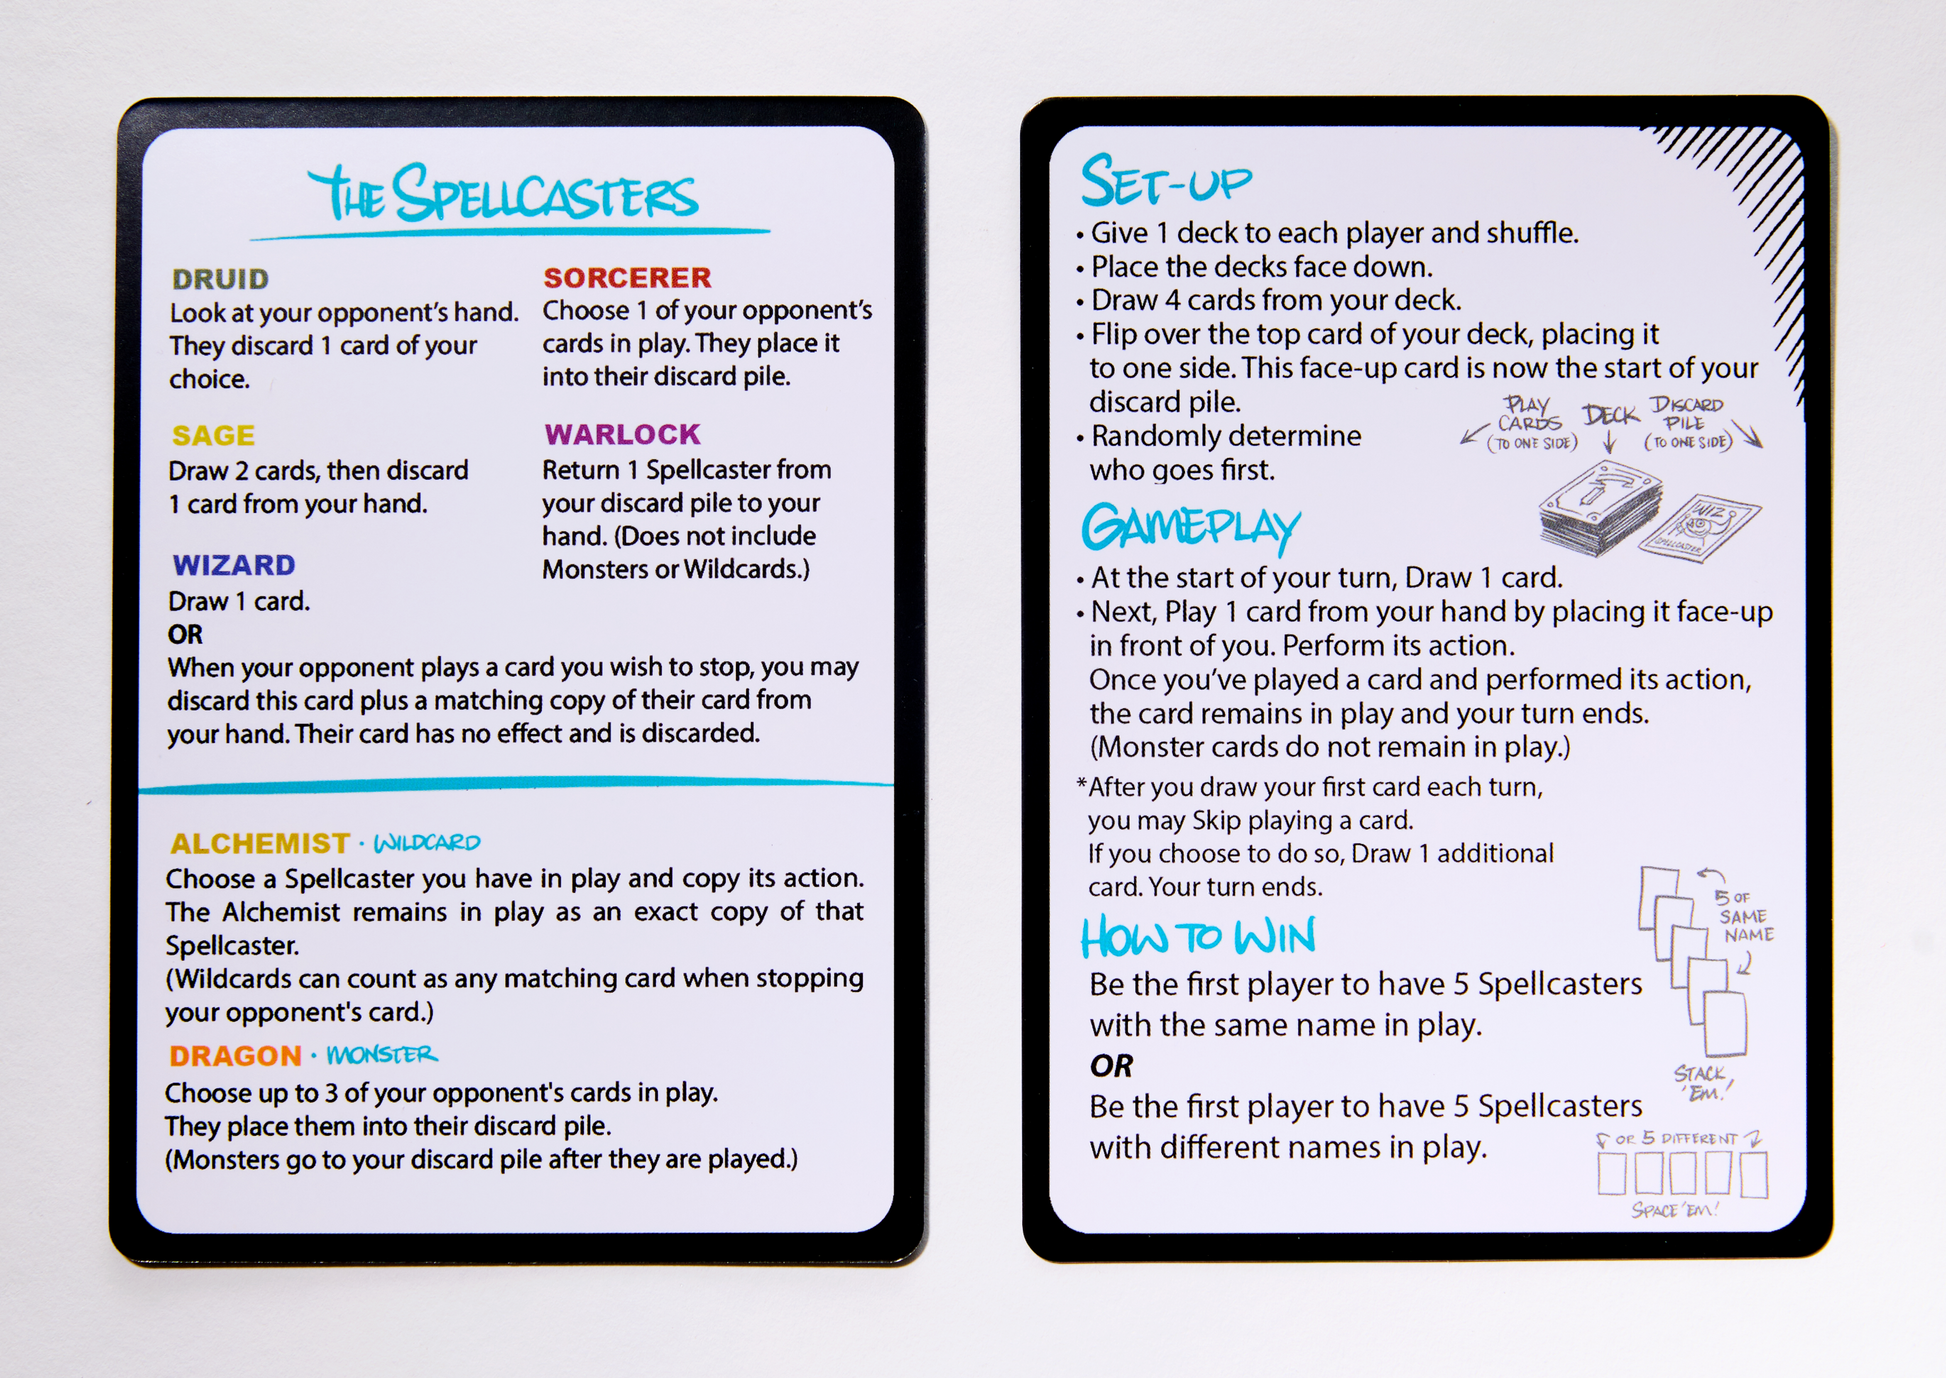 THE SPELLCASTERS
DRUID
Look at your opponent's hand.
They discard 1 card of your
choice.
SAGE
Draw 2 cards, then discard
1 card from your hand.
WIZARD
Draw 1 card.
OR
When your opponent plays a card you wish to stop, you may
discard this card plus a matching copy of their card from
your hand. Their card has no effect and is discarded.
SORCERER
Choose 1 of your opponent's
cards in play. They place it
into their discard pile.
WARLOCK
Return 1 Spellcaster from
your discard pile to your
hand. (Does not include
Monsters or Wildcards.)
ALCHEMIST · WILDCARD
Choose a Spellcaster you have in play and copy its action.
The Alchemist remains in play as an exact copy of that
Spellcaster.
(Wildcards can count as any matching card when stopping
your opponent's card.)
DRAGON · MONSTER
Choose up to 3 of your opponent's cards in play.
They place them into their discard pile.
(Monsters go to your discard pile after they are played.)
SET-UP
• Give 1 deck to each player and shuffle.
• Place the decks face down.
• Draw 4 cards from your deck.
• Flip over the top card of your deck, placing it
to one side. This face-up card is now the start of your
discard pile.
• Randomly determine
who goes first.
PLAY
CARDS
(TO ONE SIDE)
DECK
DISCARD
PILE
(TO ONE SIDE)
WIZ
SPELLCASTER
GAMEPLAY
• At the start of your turn, Draw 1 card.
• Next, Play 1 card from your hand by placing it face-up
in front of you. Perform its action.
Once you've played a card and performed its action,
the card remains in play and your turn ends.
(Monster cards do not remain in play.)
*After you draw your first card each turn,
you may Skip playing a card.
If you choose to do so, Draw 1 additional
card. Your turn ends.
HOW TO WIN
Be the first player to have 5 Spellcasters
with the same name in play.
OR
Be the first player to have 5 Spellcasters
with different names in play.
5 OF
SAME
NAME
STACK
'EM!
OR 5 DIFFERENT
SPACE 'EM!